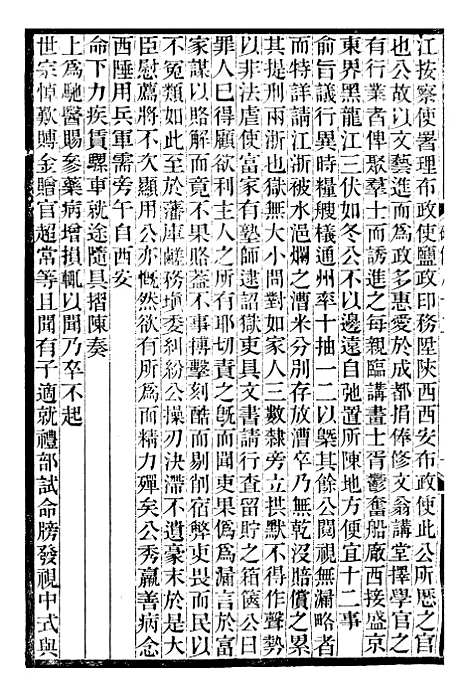 江按察使署理布政使鹽政印務陞陝西西安布政使此公所歷之官
也公故以文藝進而為政多惠愛於成都捐俸修文翁講堂擇學官之
有行業者俾聚羣士而誘進之每親臨講畫士胥鬱奮船廠西接盛京
東界黑龍江三伏如冬公不以邊遠自弛置所陳地方便宜十二事
俞旨議行異時糧艘樣通州率十抽一二以槩其餘公閱視無漏略者
而特詳請江浙被水邑爛之漕米分別存放漕卒乃無乾沒賠償之累
其提刑兩浙也獄無大小問對如家人三數隸旁立拱默不得作聲勢
以非法虐使富家有塾師逮詔獄吏具文書請行查留貯之箱篋公曰
罪人已得顧欲利主人之所有耶切責之旣而聞吏果僞為漏言於富
家謀以賂解而竟不果賂蓋不事摶擊刻酷而剔削宿弊吏畏而民以
不冤類如此至於藩庫鹺務塡委糾紛公操刃決滯不遺豪末於是大
臣慰薦將不久顯用公亦慨然欲有所為而精力殫矣公秀羸善病念
西陲用兵軍需旁午自西安
命下力疾賃騾車就途隨具摺陳奏
上為馳醫賜參藥病增損輒以聞乃卒不起
世宗悼歎賻金贈官超常等且聞有子適就禮部試命牓發視中式與